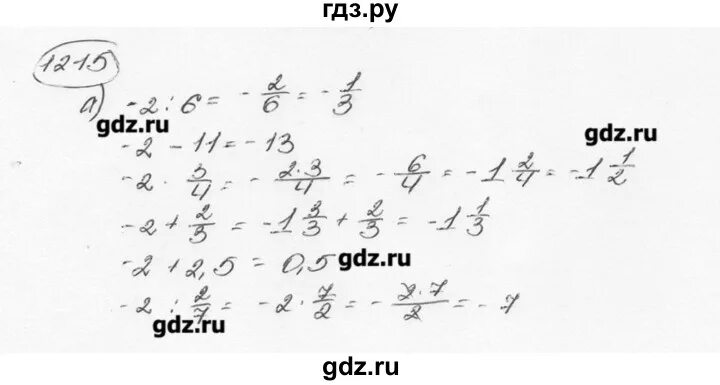 гдз.ру
1215
а) -2 : 6 = - 2/6 = - 1/3
gdz.ru
gdz.ru
-2 - 11 = - 13
-2 · 3/4 = - 2·3/4 = - 6/4 = - 1 2/4 = - 1 1/2
-2 + 2/3 = - 1 3/3 + 2/3 = - 1 1/3
-2 + 2,5 = 0,5
gdz.ru
-2 : 2/7 = -2 · 7/2 = - 2·7/2 = - 7
gdz.ru
gdz.ru